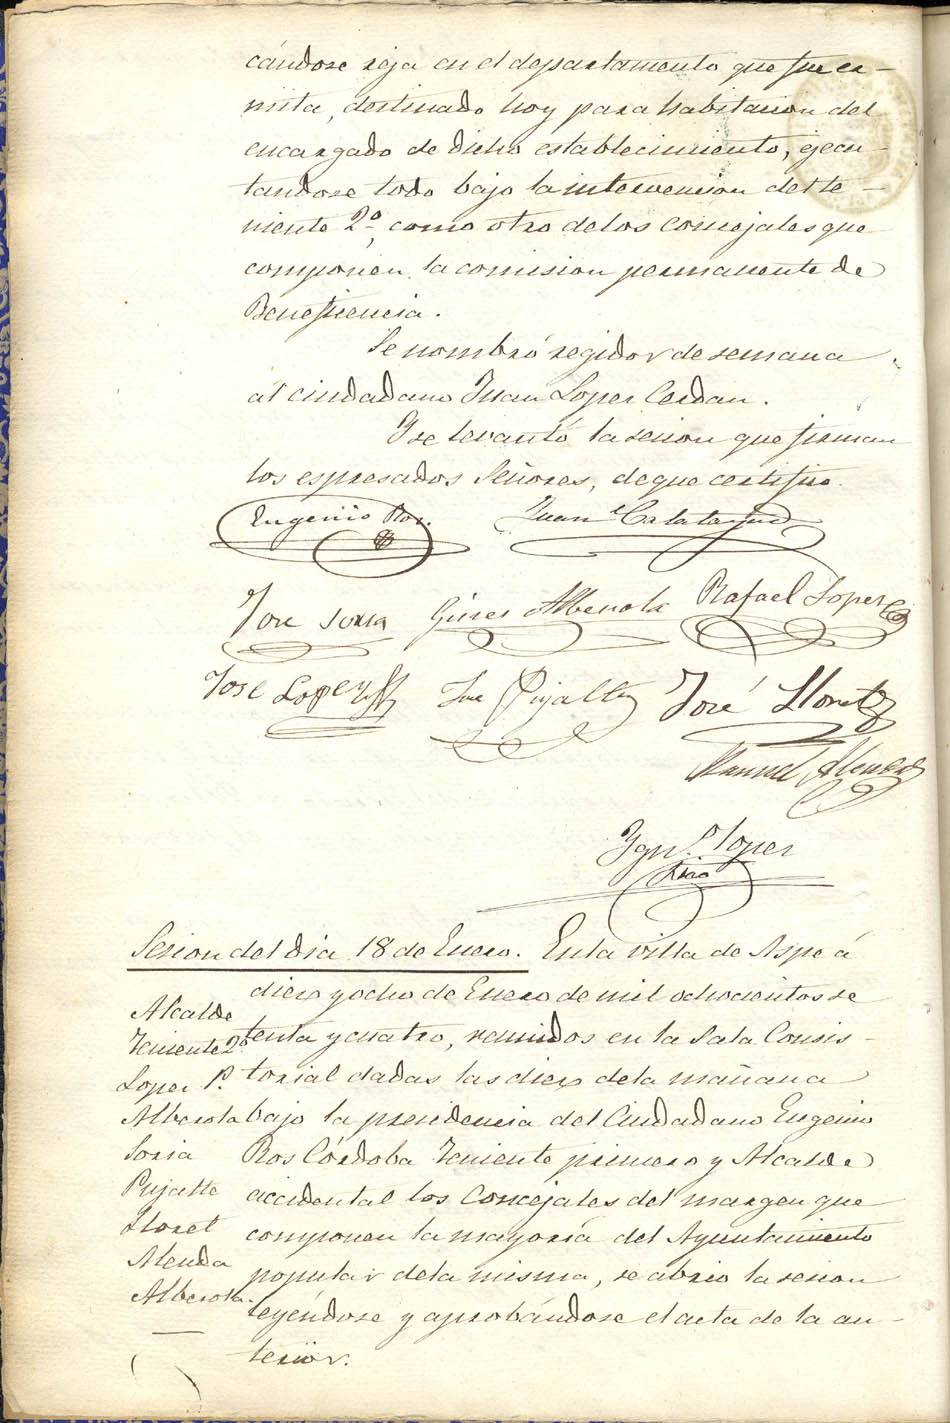 cándose reja en el departamento que fue er-
mita, destinado hoy para habitacion del
encargado de dicho establecimiento, ejecu-
tandose todo bajo la intervencion del te-
niente 2º, como otro de los concejales que
componen la comision permanente de
Beneficencia.
Se nombró regidor de semana
al ciudadano Juan Lopez Cerdan.
Y se levantó la sesion que firman
los espresados Señores, de que certifico.
Eugenio Ros. Juan Calatayud
Jose Soria Gines Alberola Rafael Lopez
Jose Lopez José Pujalte José Lloret
Manuel Alenda
Ygn.º Lopez
Srio
Sesion del dia 18 de Enero. En la villa de Aspe á
diez y ocho de Enero de mil ochocientos se
tenta y cuatro, reunidos en la Sala Consis-
torial dadas las diez de la mañana
bajo la presidencia del Ciudadano Eugenio
Ros Córdoba Teniente primero y Alcalde
accidental los Concejales del margen que
componen la mayoría del Ayuntamiento
popular de la misma, se abrio la sesion
leyéndose y aprobándose el acta de la an-
terior.
Alcalde
Teniente 2º
Lopez P.
Alberola
Soria
Pujalte
Lloret
Alenda
Alberola.